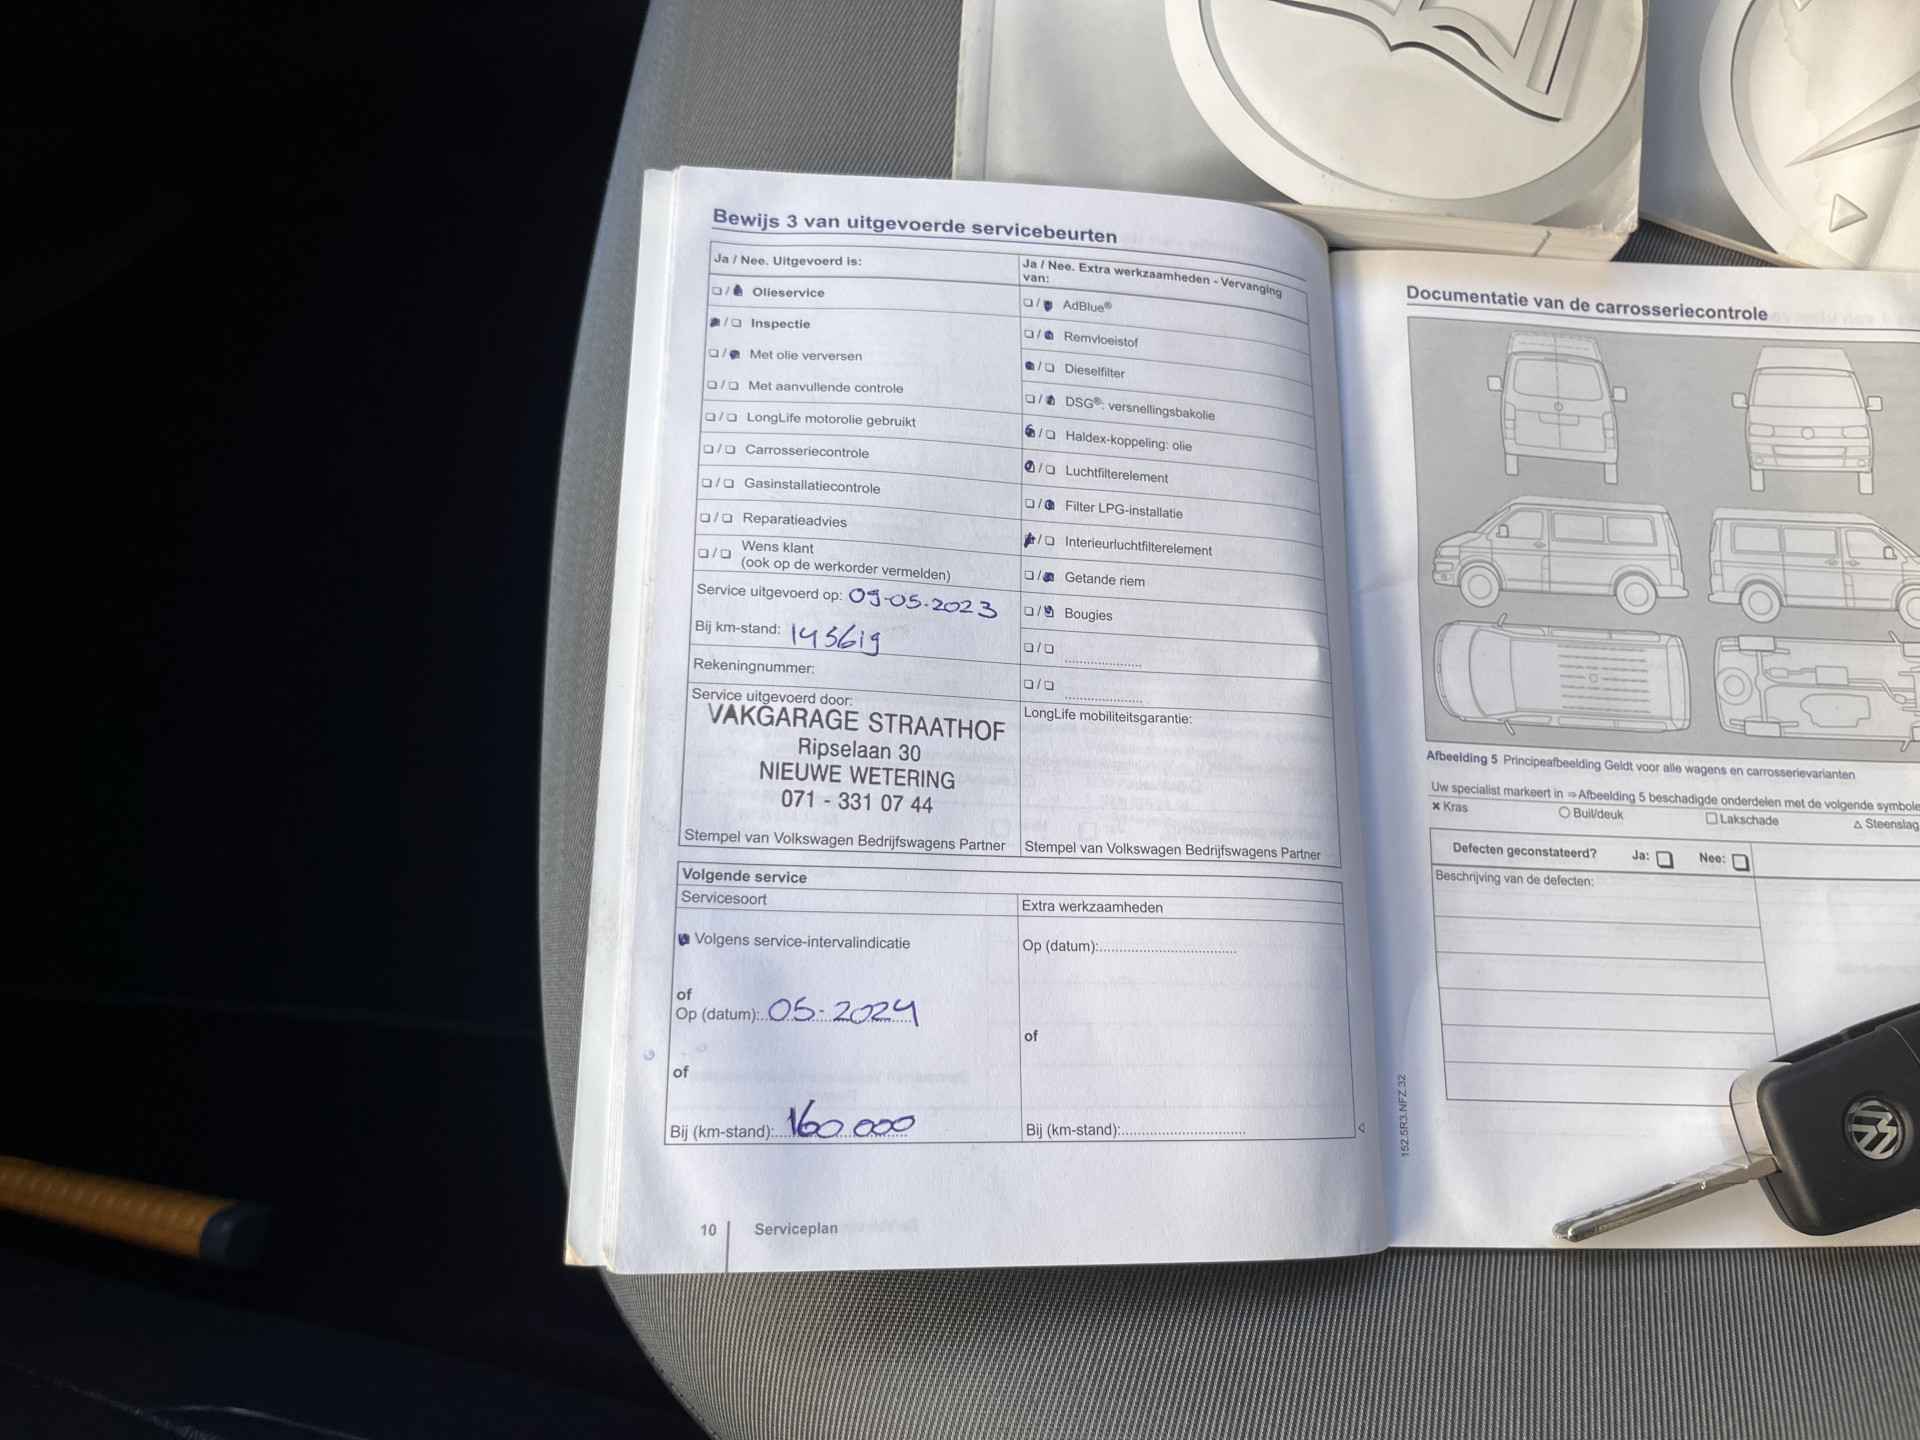 Bewijs 3 van uitgevoerde servicebeurten
Ja / Nee. Uitgevoerd is:
❏ / ❏ Olieservice
❏ / ❏ Inspectie
❏ / ❏ Met olie verversen
❏ / ❏ Met aanvullende controle
❏ / ❏ LongLife motorolie gebruikt
❏ / ❏ Carrosseriecontrole
❏ / ❏ Gasinstallatiecontrole
❏ / ❏ Reparatieadvies
❏ / ❏ Wens klant
(ook op de werkorder vermelden)
Service uitgevoerd op: 09-05-2023
Bij km-stand:
Rekeningnummer:
Service uitgevoerd door:
VAKGARAGE STRAATHOF
Ripselaan 30
NIEUWE WETERING
071 - 331 07 44
Stempel van Volkswagen Bedrijfswagens Partner
Ja / Nee. Extra werkzaamheden - Vervanging
van:
❏ / ❏ AdBlue®
❏ / ❏ Remvloeistof
❏ / ❏ Dieselfilter
❏ / ❏ DSG®: versnellingsbakolie
❏ / ❏ Haldex-koppeling: olie
❏ / ❏ Luchtfilterelement
❏ / ❏ Filter LPG-installatie
❏ / ❏ Interieurluchtfilterelement
❏ / ❏ Getande riem
❏ / ❏ Bougies
❏ / ❏ ....................
❏ / ❏ ....................
LongLife mobiliteitsgarantie:
Stempel van Volkswagen Bedrijfswagens Partner
Volgende service
Servicesoort
❏ Volgens service-intervalindicatie
of
Op (datum): 05-2024
of
Bij (km-stand): 160 000
Extra werkzaamheden
Op (datum):..................................
of
Bij (km-stand):..............................
10
Serviceplan
Documentatie van de carrosseriecontrole
Afbeelding 5 Principeafbeelding Geldt voor alle wagens en carrosserievarianten
Uw specialist markeert in ⇒Afbeelding 5 beschadigde onderdelen met de volgende symbole
× Kras
○ Buil/deuk
❏ Lakschade
△ Steenslag
Defecten geconstateerd? Ja: ❏ Nee: ❏
Beschrijving van de defecten:
152.5R3.NFZ.32